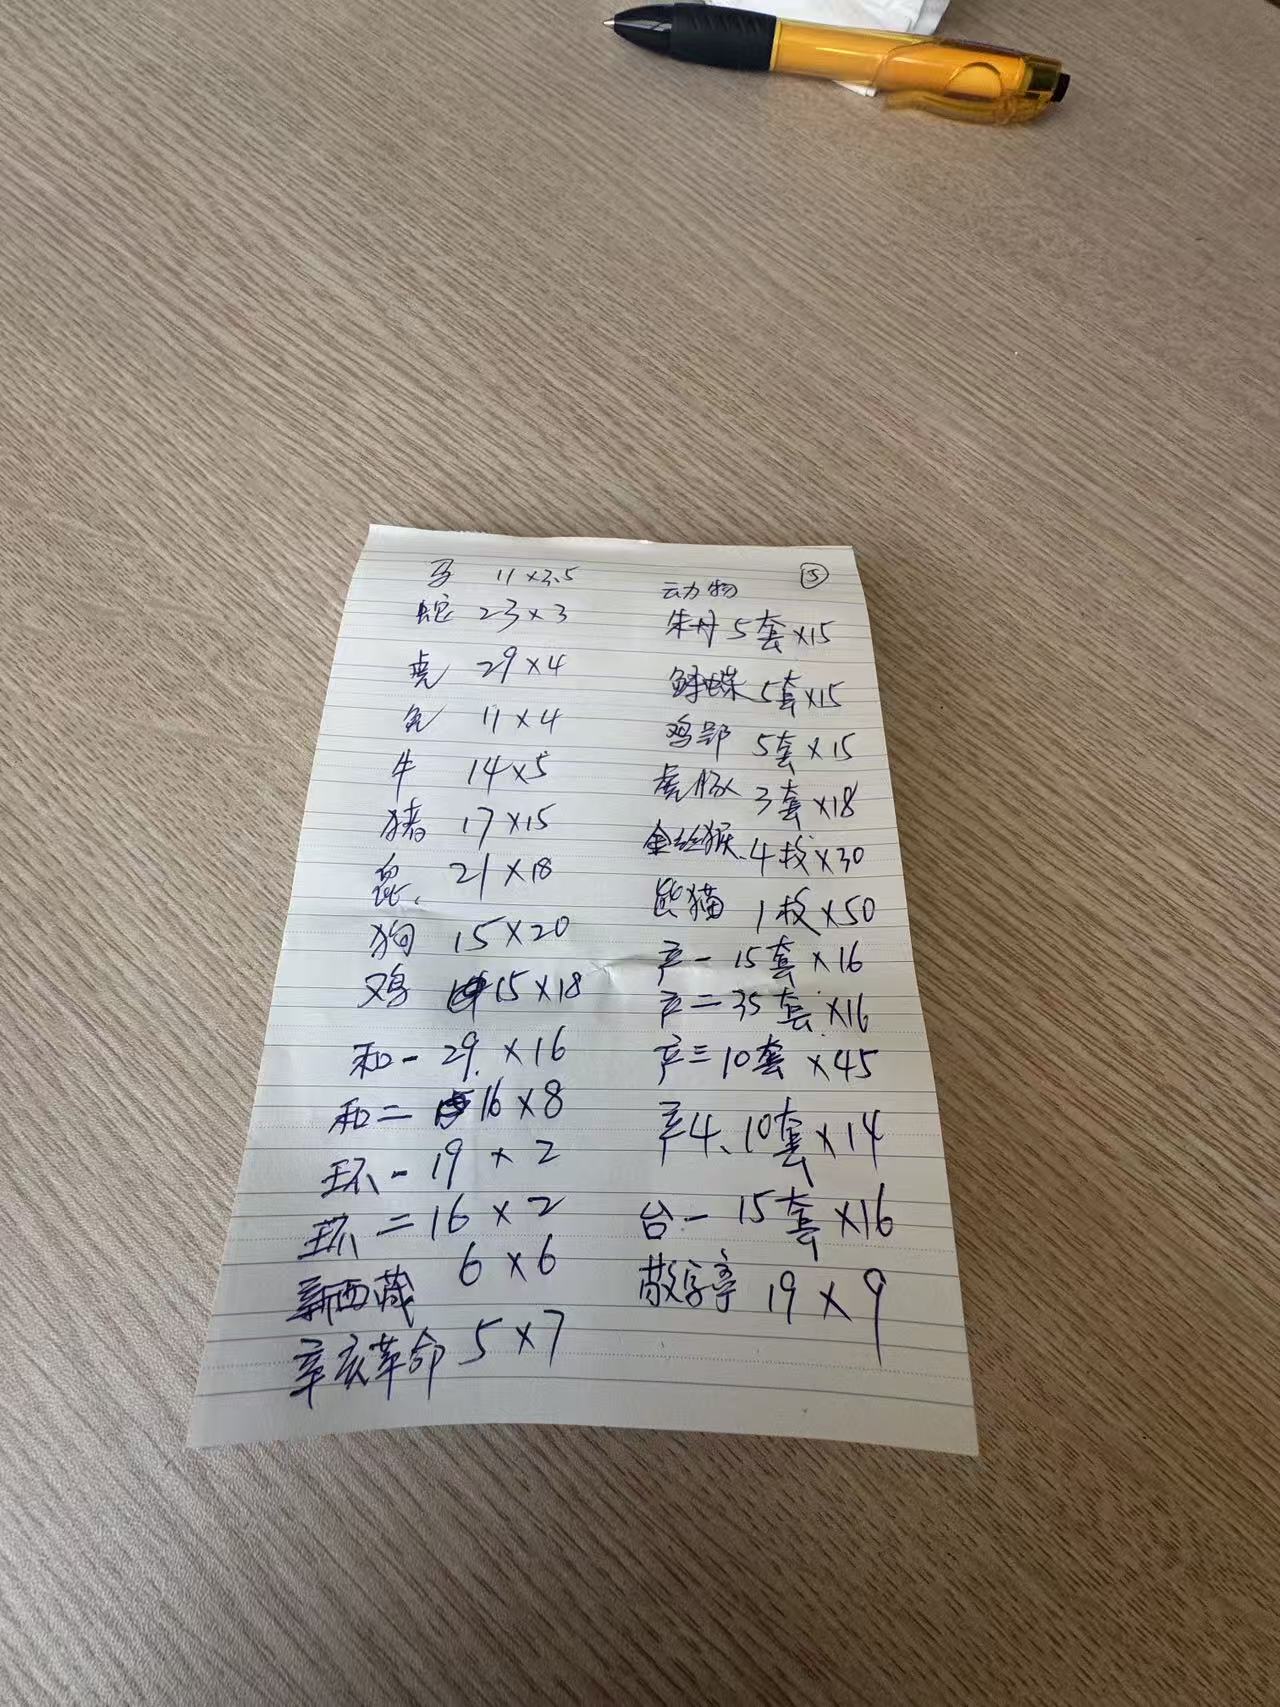 马 11×3.5
蛇 23×3
虎 29×4
兔 11×4
牛 14×5
猪 17×15
鼠 21×18
狗 15×20
鸡 15×18
和一 29×16
和二 16×8
环一 19×2
环二 16×2
新西藏 6×6
辛亥革命 5×7
⑤
动物
朱丹 5套×15
鲟蝶 5套×15
鸡鳄 5套×15
虎豚 3套×18
金丝猴 4枚×30
熊猫 1枚×50
产一 15套×16
产二 35套×16
产三 10套×45
产4、10套×14
台一 15套×16
敬字亭 19×9